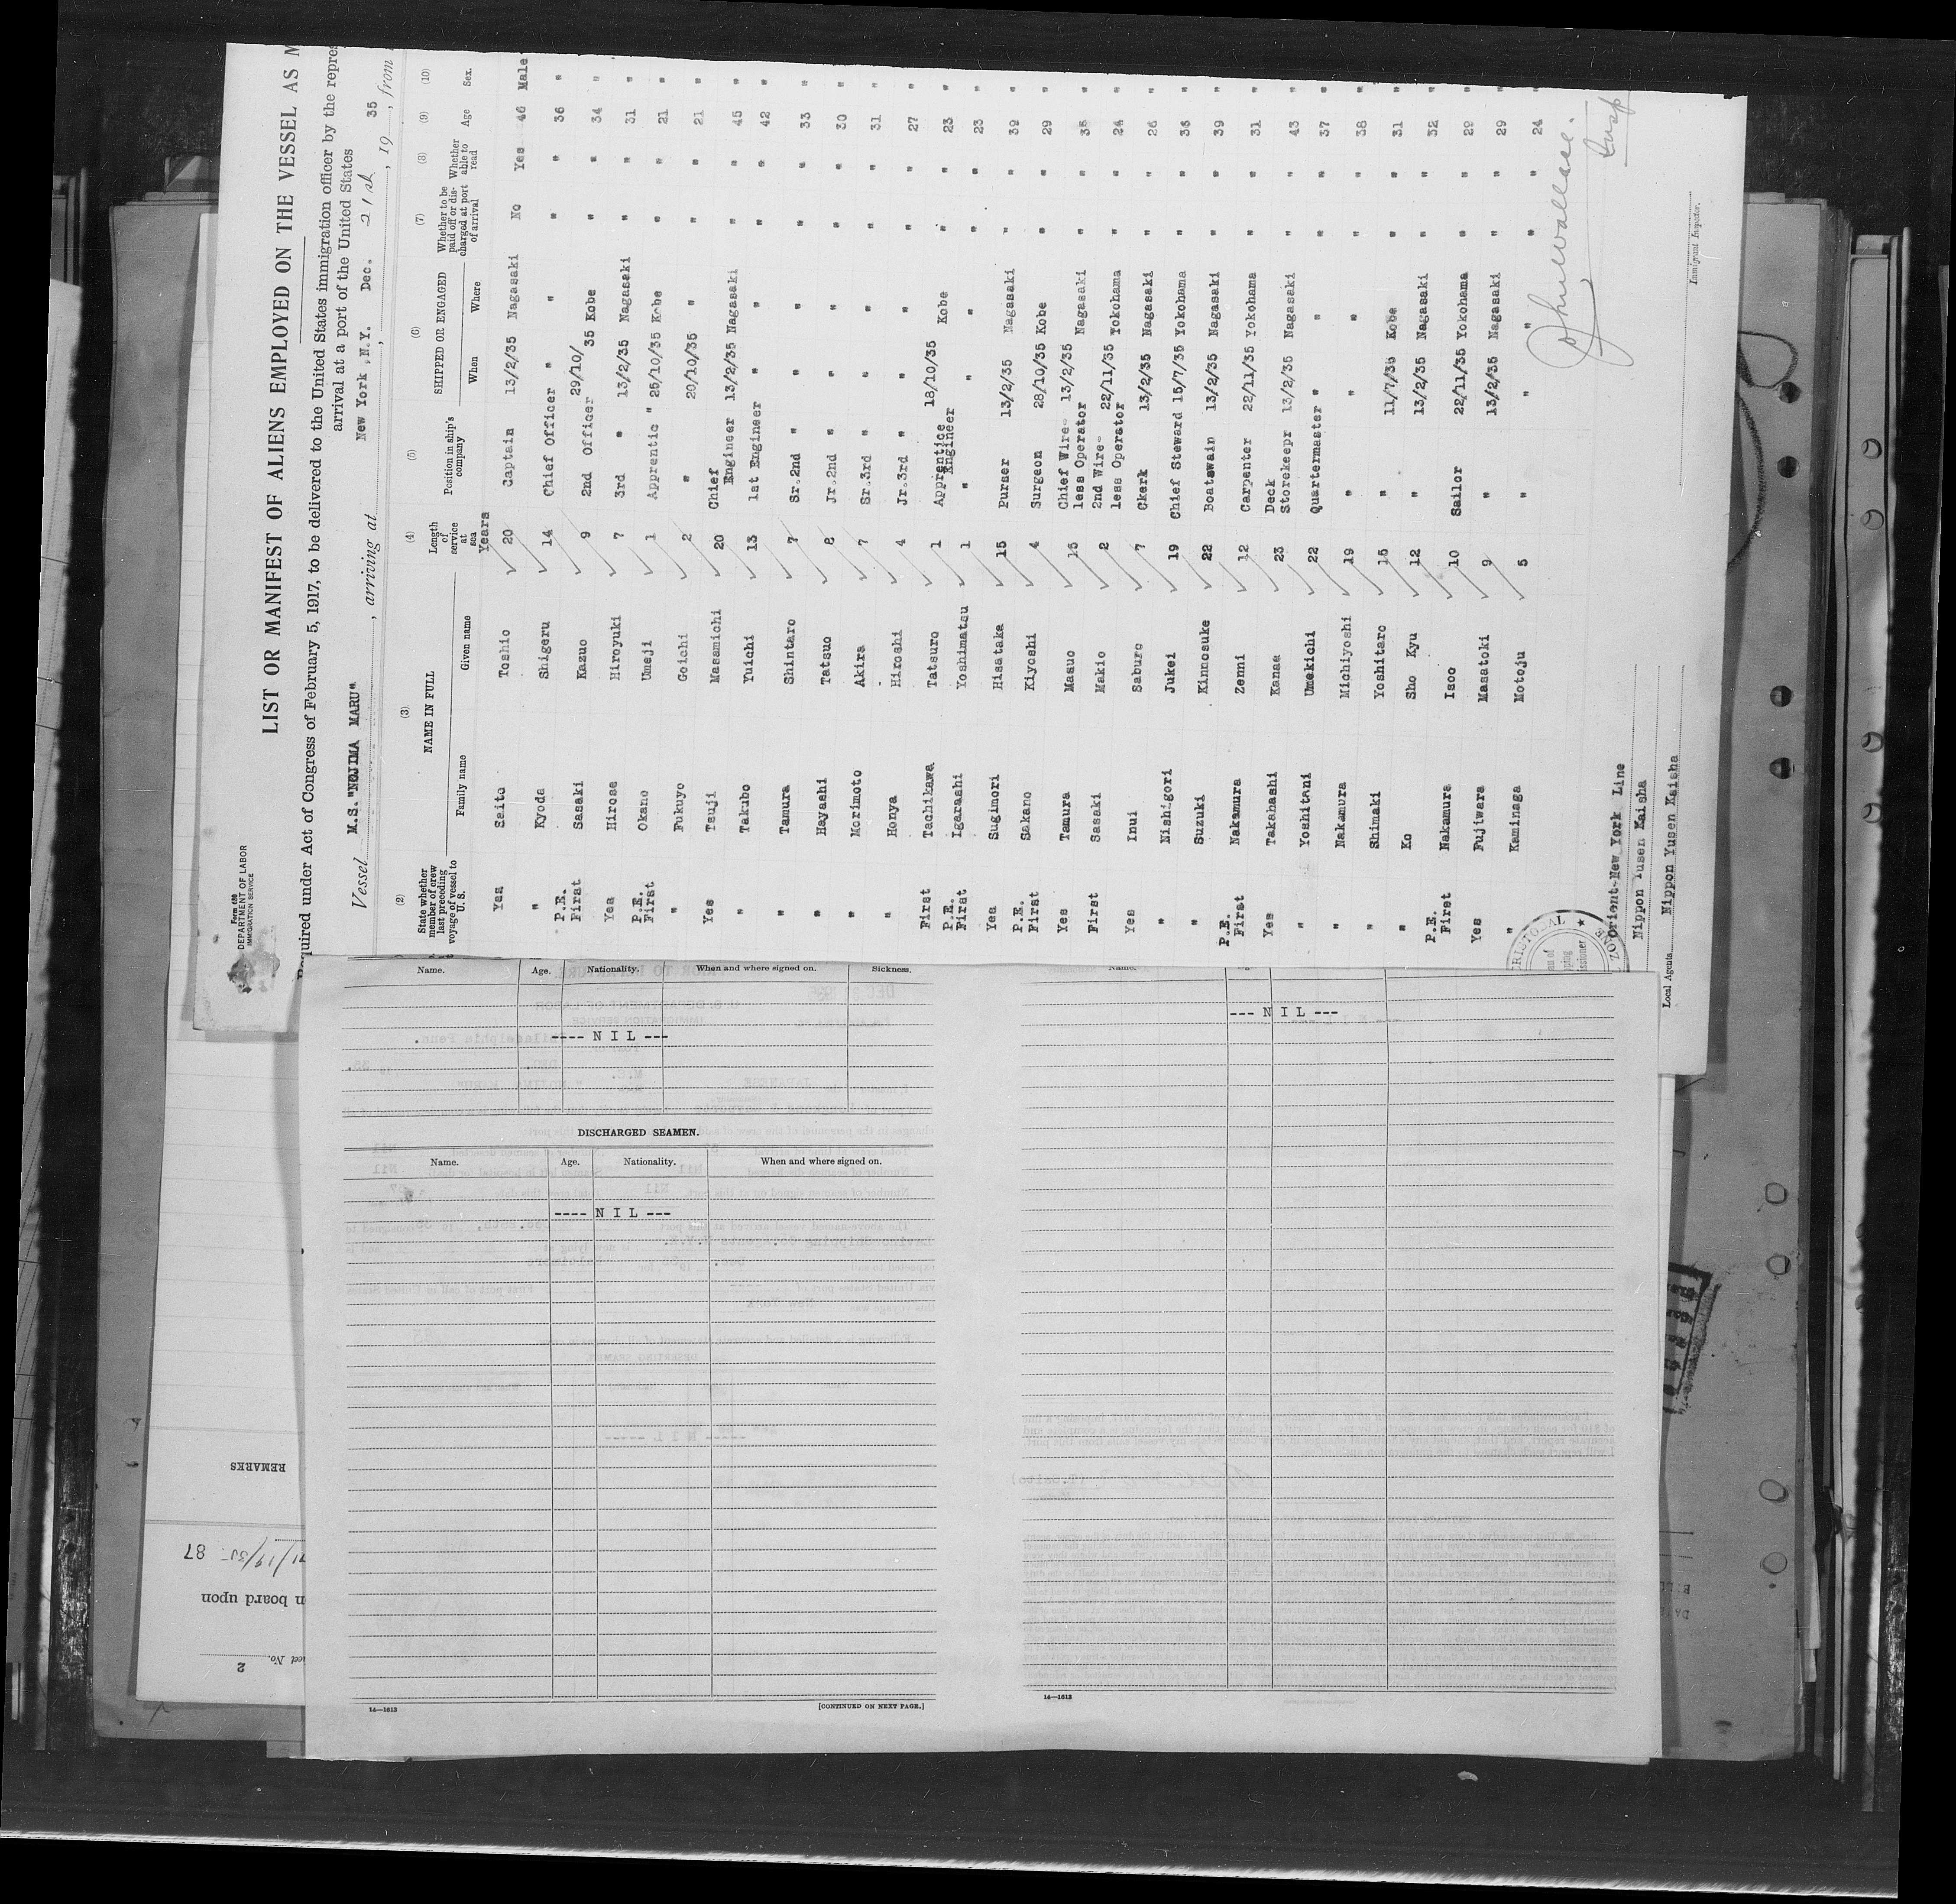 Form 680
DEPARTMENT OF LABOR
IMMIGRATION SERVICE
LIST OR MANIFEST OF ALIENS EMPLOYED ON THE VESSEL AS M
Required under Act of Congress of February 5, 1917, to be delivered to the United States immigration officer by the repres
arrival at a port of the United States
Vessel M.S."NOJIMA MARU" , arriving at New York ,N.Y. , Dec. 21st , 19 35 , from
(2) (3) (4) (5) (6) (7) (8) (9) (10)
State whether member of crew last preceding voyage of vessel to U. S. NAME IN FULL Family name Given name Length of service at sea Position in ship's company SHIPPED OR ENGAGED When Where Whether to be paid off or discharged at port of arrival Whether able to read Age Sex.
Years
Yes Saito Toshio 20 Captain 13/2/35 Nagasaki No Yes 46 Male
" Kyoda Shigeru 14 Chief Officer " " " " 36 "
P.E. First Sasaki Kazuo 9 2nd Officer 29/10/35 Kobe " " 34 "
Yes Hirose Hiroyuki 7 3rd " 13/2/35 Nagasaki " " 31 "
P.E. First Okano Umeji 1 Apprentic " 25/10/35 Kobe " " 21 "
" Fukuyo Goichi 2 " 20/10/35 " " " 21 "
Yes Tsuji Masamichi 20 Chief Engineer 13/2/35 Nagasaki " " 45 "
" Takubo Yuichi 13 1st Engineer " " " " 42 "
" Tamura Shintaro 7 Sr.2nd " " " " " 33 "
" Hayashi Tatsuo 8 Jr.2nd " " " " " 30 "
" Morimoto Akira 7 Sr.3rd " " " " " 31 "
" Honya Hiroshi 4 Jr.3rd " " " " " 27 "
First Tachikawa Tatsuro 1 Apprentice Engineer 18/10/35 Kobe " " 23 "
P.E. First Igarashi Yoshimatsu 1 " " " " " 23 "
Yes Sugimori Hisataka 15 Purser 13/2/35 Nagasaki " " 39 "
P.E. First Sakano Kiyoshi 4 Surgeon 28/10/35 Kobe " " 29 "
Yes Tamura Masuo 15 Chief Wireless Operator 13/2/35 Nagasaki " " "
First Sasaki Makio 2 2nd Wireless Operator 22/11/35 Yokohama " " 24 "
Yes Inui Saburo 7 Ckerk 13/2/35 Nagasaki " " 26 "
" Nishigori Jukei 19 Chief Steward 15/7/35 Yokohama " " "
" Suzuki Kinnosuke 22 Boatswain 13/2/35 Nagasaki " " 39 "
P.E. First Nakamura Zenni 12 Carpenter 22/11/35 Yokohama " " 31 "
Yes Takahashi Kanae 23 Deck Storekeepr 13/2/35 Nagasaki " " 43 "
" Yoshitani Umekichi 22 Quartermaster " " " " 37 "
" Nakamura Michiyoshi 19 " " " " " 38 "
" Shimaki Yoshitaro 15 " 11/7/35 Kobe " " 31 "
" Ko Sho Kyu 12 " 13/2/35 Nagasaki " " 32 "
P.E. First Nakamura Isoo 10 Sailor 22/11/35 Yokohama " " 29 "
Yes Fujiwara Masatoki 9 " 13/2/35 Nagasaki " " 29 "
" Kaminaga Motoju 5 " " " " " 24 "
Orient-New York Line
Nippon Yusen Kaisha
Local Agents Nippon Yusen Kaisha
Immigrant Inspector.
Name. Age. Nationality. When and where signed on. Sickness.
---- N I L ---
DISCHARGED SEAMEN.
Name. Age. Nationality. When and where signed on.
---- N I L ---
14—1613
[CONTINUED ON NEXT PAGE.]
Name.
--- N I L ---
14—1613
REMARKS
87
n board upon
2